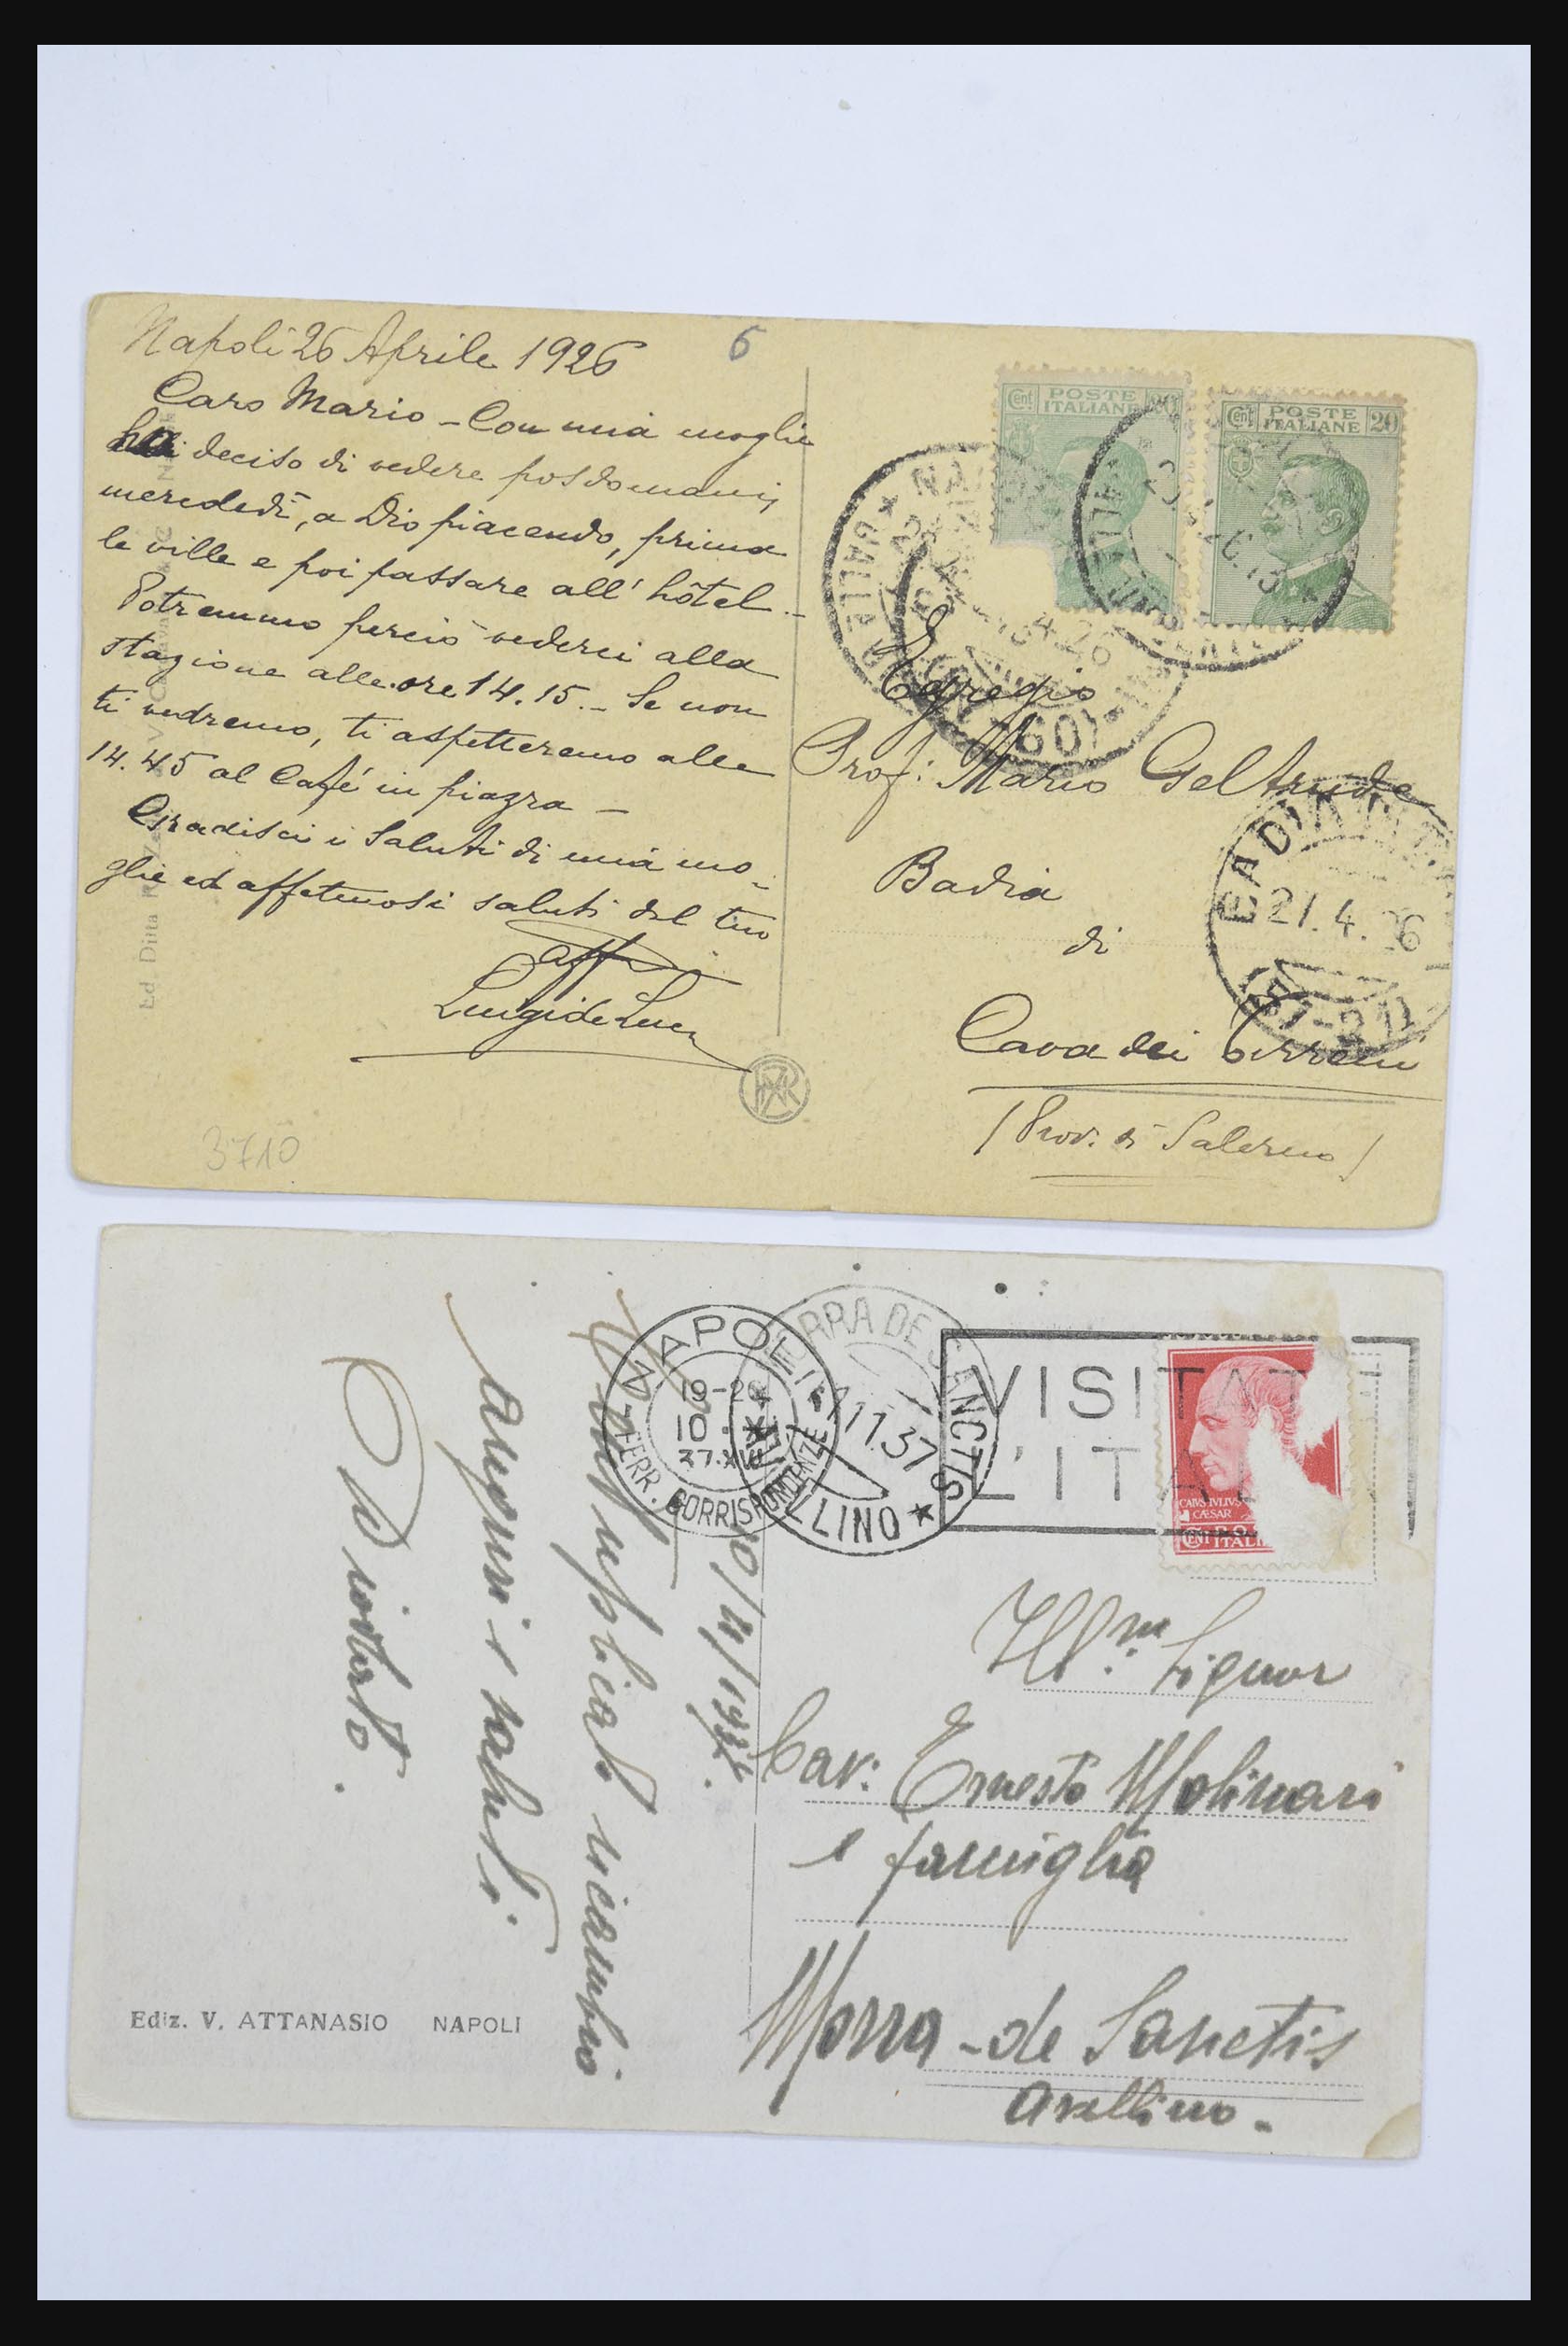 Napoli 26 Aprile 1926
6
Caro Mario - Con mia moglie
ho deciso di vedere posdomani,
mercoledì, a Dio piacendo, prima
le ville e poi passare all' hôtel -
Potremmo perciò vederci alla
stazione alle ore 14.15. - Se non
ti vedremo, ti aspetteremo alle
14.45 al Café in piazza -
Gradisci i saluti di mia mo-
glie ed affettuosi saluti del tuo
aff
Luigi de Luca
3710
Ed Ditta
Cent POSTE ITALIANE 20
Cent POSTE ITALIANE 20
Egregio
Prof: Mario Geltrude
Badia
di
Cava dei Tirreni
(Prov. di Salerno)
BADIA
27.4.26
NAPOLI
19-20
10
37.XVI
FERR. CORRISPONDENZE
MORRA DE SANCTIS
11.37
AVELLINO
VISITATE
L'ITALIA
CAIVS·IVLIVS CÆSAR
CENT ITALI
10/11/937.
ricambio
auguri e saluti.
Ill.mo Signor
Cav: Ernesto Molinari
e famiglia
Morra - de Sanctis
Avellino -
Ediz. V. ATTANASIO NAPOLI